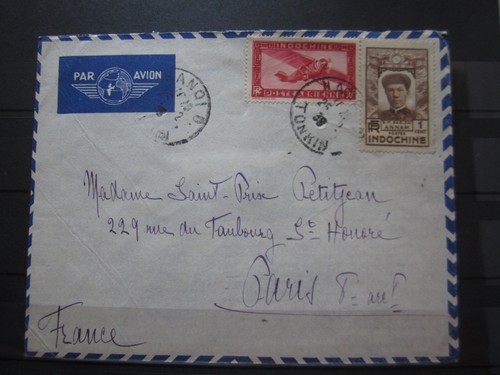 PAR AVION
INDOCHINE
POSTE AERIENNE
HANOI
TONKIN
ANNAM
INDOCHINE
Madame Saint-Prix Petitjean
229 rue du Faubourg St Honoré
Paris
France